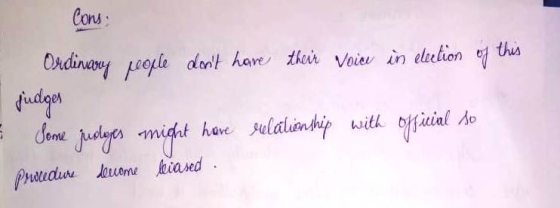 Cons:
Ordinary people don't have their voice in election of this
judges
Some judges might have relationship with official so
Procedure become biased.